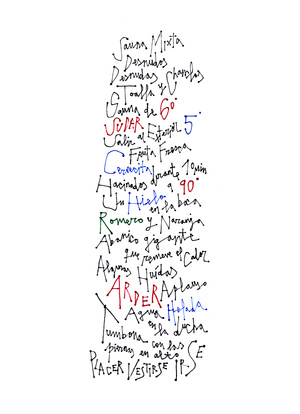 Sauna Mixta
Desnudos
Desnudas Chanclas
Toalla y
Sauna de 60°
SUDAR
Salir al Exterior 5°
Fruta Fresca
Cervecita
Hacinados durante 10 min
a 90°
Un Hielo
en la boca
Romero y Naranja
Abanico gigante
que remueve el Calor
Algunas Huidas
ARDER Aplauso
Agua Helada
en la ducha
Tumbona con las
piernas en alto
PLACER VESTIRSE IR.SE